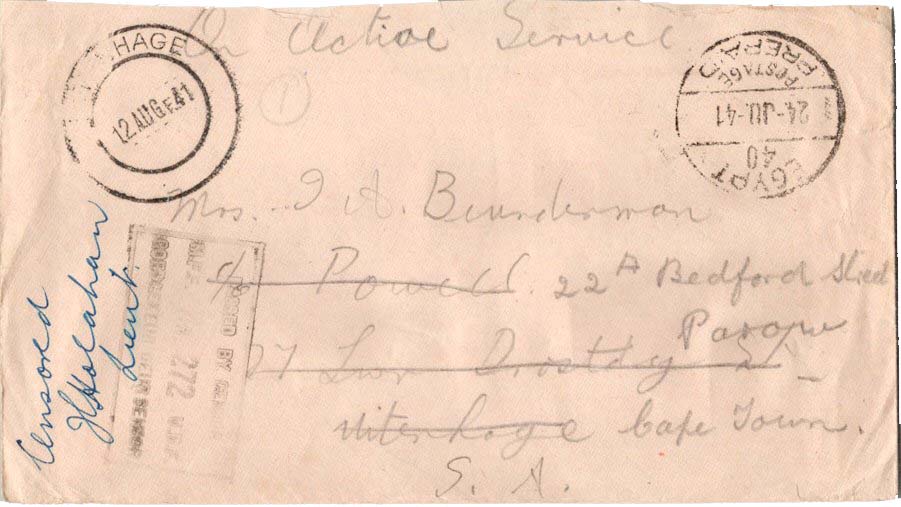 On Active Service
HAGE
12 AUG E 41
POSTAGE
PREPAID
24-JU.-41
40
EGYPT
1
Mrs. I A. Beunderman
c/o Powell. 22A Bedford Street
Parow
27 Drostdy St
Uitenhage Cape Town.
S. A.
Censored
Lieut
PASSED BY
272 U.D.F.